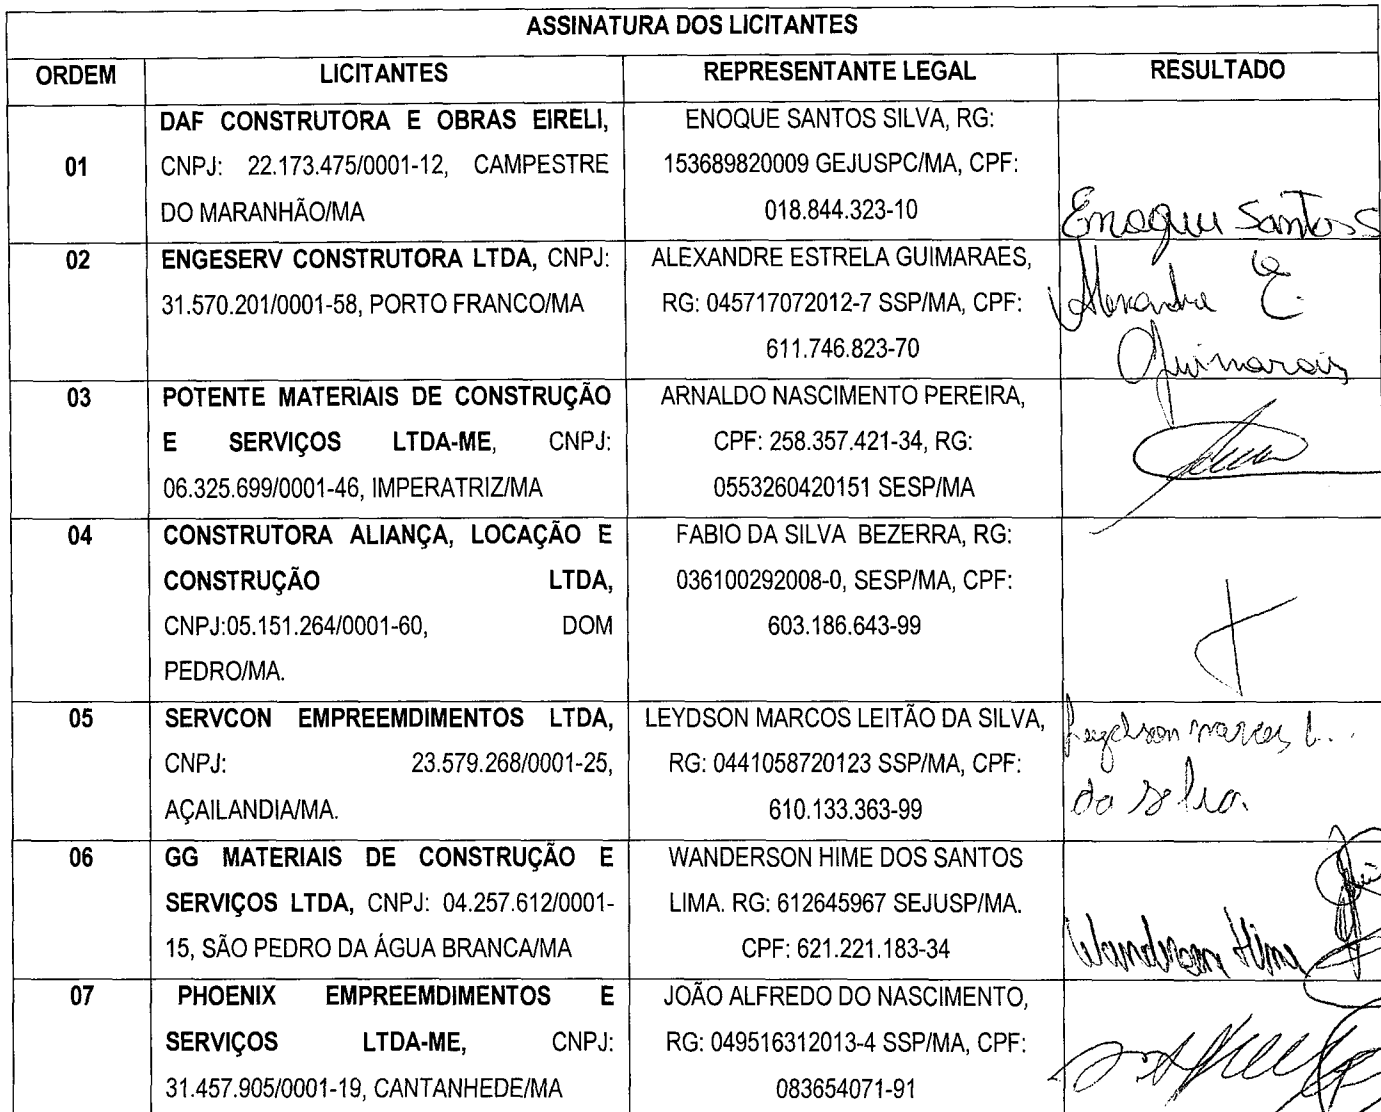 ASSINATURA DOS LICITANTES
ORDEM LICITANTES REPRESENTANTE LEGAL RESULTADO
01
DAF CONSTRUTORA E OBRAS EIRELI,
CNPJ: 22.173.475/0001-12, CAMPESTRE
DO MARANHÃO/MA
ENOQUE SANTOS SILVA, RG:
153689820009 GEJUSPC/MA, CPF:
018.844.323-10
Enoque Santos S
02
ENGESERV CONSTRUTORA LTDA, CNPJ:
31.570.201/0001-58, PORTO FRANCO/MA
ALEXANDRE ESTRELA GUIMARAES,
RG: 045717072012-7 SSP/MA, CPF:
611.746.823-70
Alexandre E.
Guimarais
03
POTENTE MATERIAIS DE CONSTRUÇÃO
E SERVIÇOS LTDA-ME, CNPJ:
06.325.699/0001-46, IMPERATRIZ/MA
ARNALDO NASCIMENTO PEREIRA,
CPF: 258.357.421-34, RG:
0553260420151 SESP/MA
04
CONSTRUTORA ALIANÇA, LOCAÇÃO E
CONSTRUÇÃO LTDA,
CNPJ:05.151.264/0001-60, DOM
PEDRO/MA.
FABIO DA SILVA BEZERRA, RG:
036100292008-0, SESP/MA, CPF:
603.186.643-99
05
SERVCON EMPREEMDIMENTOS LTDA,
CNPJ: 23.579.268/0001-25,
AÇAILANDIA/MA.
LEYDSON MARCOS LEITÃO DA SILVA,
RG: 0441058720123 SSP/MA, CPF:
610.133.363-99
Leydson marcos L.
da Silva
06
GG MATERIAIS DE CONSTRUÇÃO E
SERVIÇOS LTDA, CNPJ: 04.257.612/0001-
15, SÃO PEDRO DA ÁGUA BRANCA/MA
WANDERSON HIME DOS SANTOS
LIMA. RG: 612645967 SEJUSP/MA.
CPF: 621.221.183-34
Wanderson Hime
07
PHOENIX EMPREEMDIMENTOS E
SERVIÇOS LTDA-ME, CNPJ:
31.457.905/0001-19, CANTANHEDE/MA
JOÃO ALFREDO DO NASCIMENTO,
RG: 049516312013-4 SSP/MA, CPF:
083654071-91